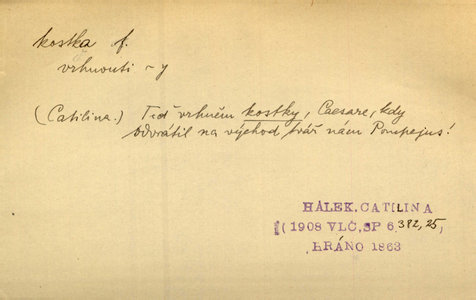 kostka f.
vrhnouti ~y
(Catilina.) Teď vrhněm kostky, Caesare, kdy
odvrátil na východ tvář nám Pompejus!
HÁLEK, CATILINA
(1908 VLČ, SP 6, 382, 25,
HRÁNO 1863